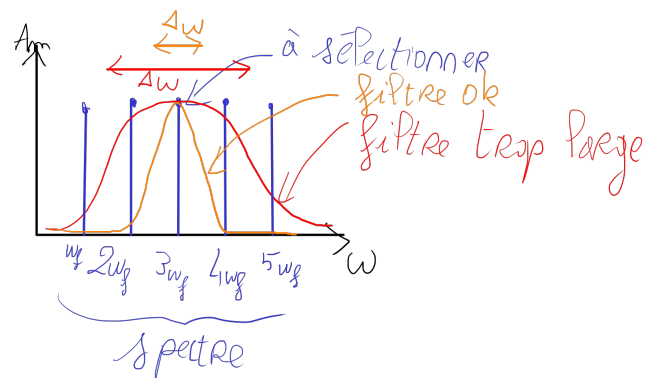 Δω
Am
Δω
à sélectionner
filtre ok
filtre trop large
ωf 2ωf 3ωf 4ωf 5ωf
ω
spectre